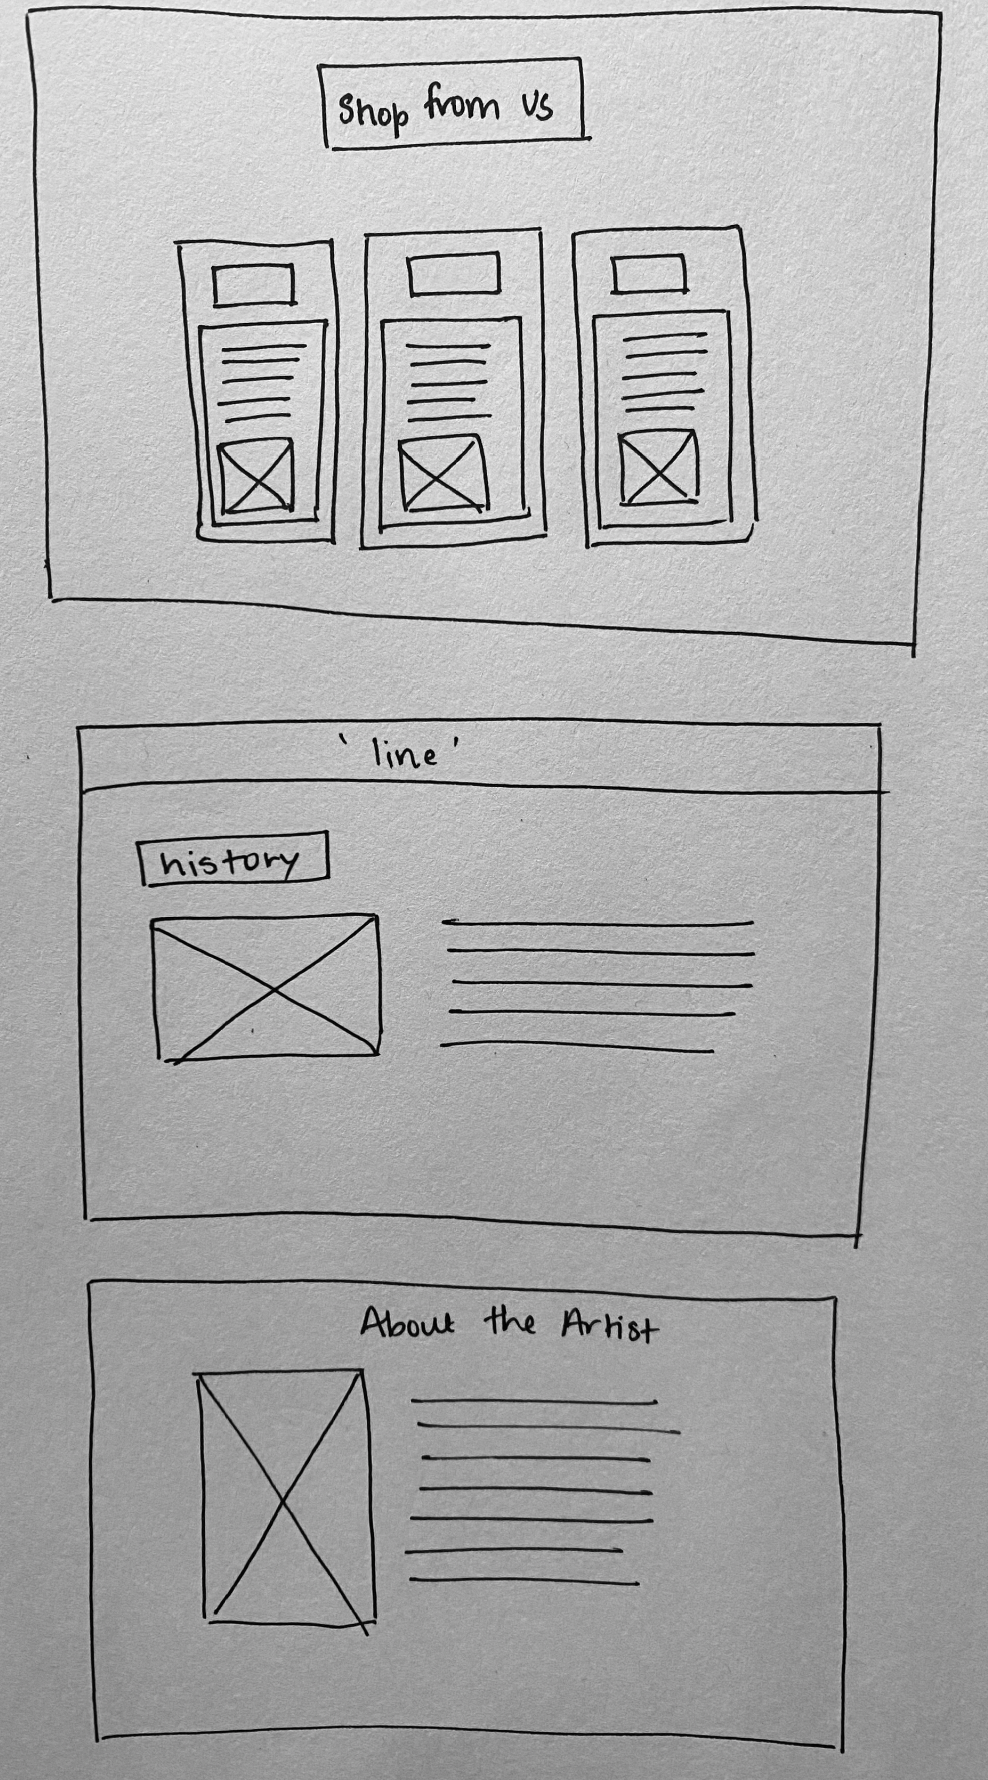 Shop from us
'line'
history
About the Artist